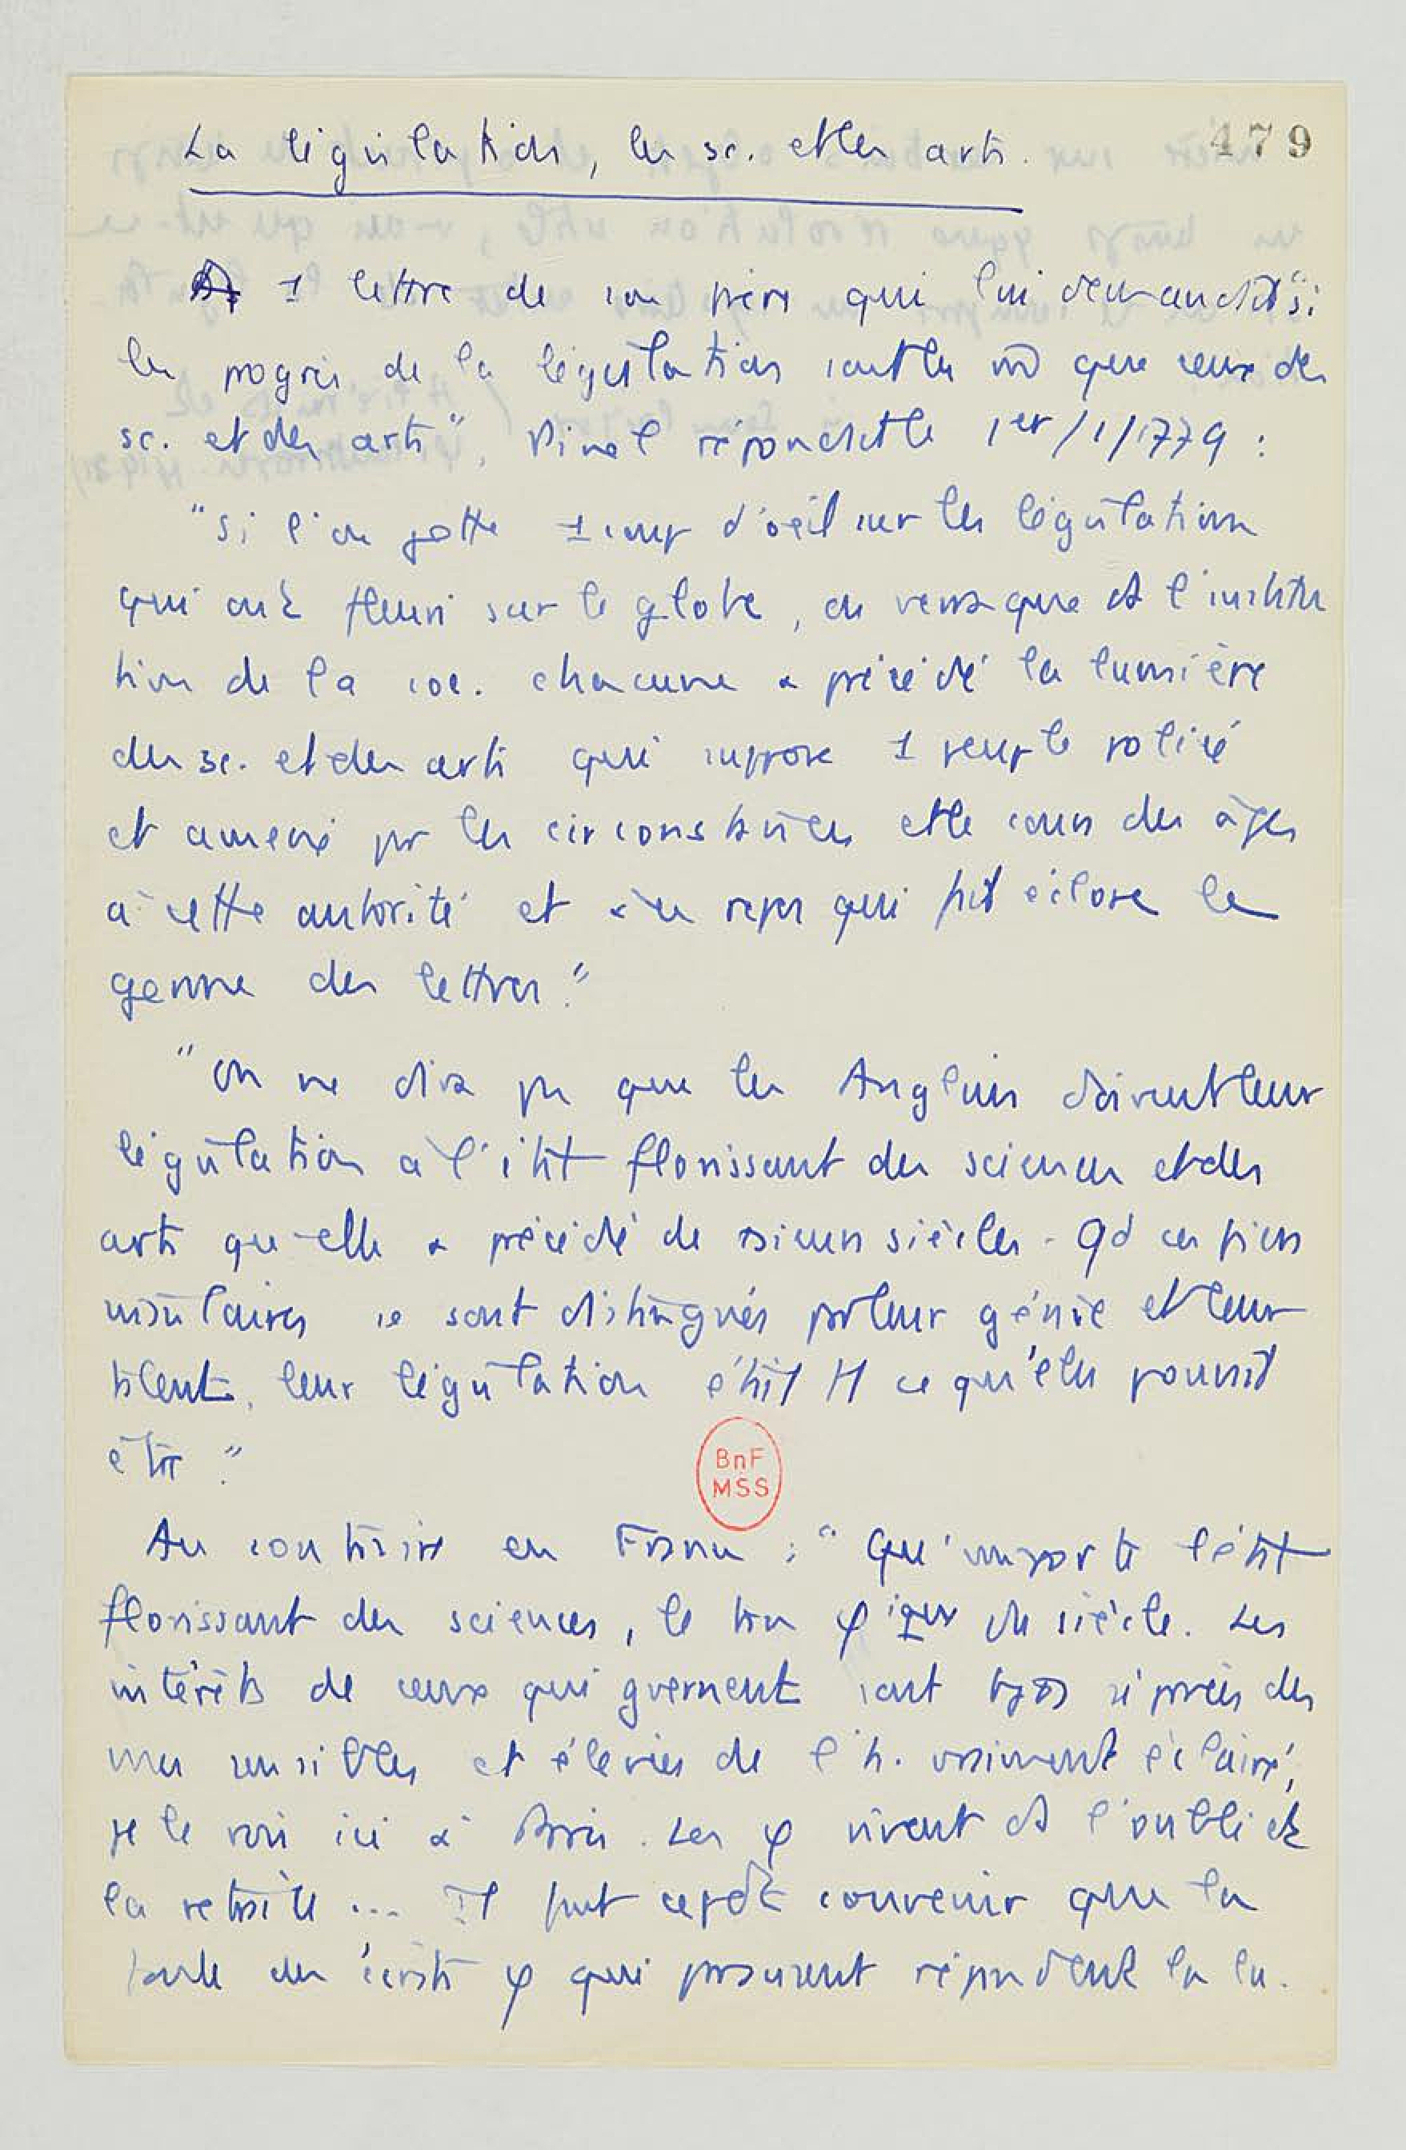 479
La législation, les sc. et les arts.
A 1 lettre de son frère qui lui demandait "si
les progrès de la législation sont les m̄ que ceux des
sc. et des arts", Pinel répondait le 1er/1/1779 :
"Si l'on jette 1 coup d'oeil sur les législations
qui ont fleuri sur le globe, on verra que ds l'institu
tion de la soc. chacune a précédé la lumière
des sc. et des arts qui suppose 1 peuple policé
et amené par les circonstances et le cours des âges
à cette autorité et à ce repos qui fait éclore le
germe des lettres."
"On ne dira pas que les Anglais doivent leur
législation à l'état florissant des sciences et des
arts qu'elle a précédé de siècles. Qd ces fiers
insulaires se sont distingués par leur génie et leur
talent, leur législation était tt ce qu'elle pouvait
être."
BnF
MSS
Au contraire en France : "Qu'importe l'état
florissant des sciences, le ton φique du siècle. Les
intérêts de ceux qui gvernent sont tjrs séparés des
vues sensibles et élevées de l'h. vraiment éclairé,
je le vois ici à Paris. Les φ vivent ds l'oubli et
la retraite ... Il faut cepdt convenir que la
foule des écrits φ qui paraissent répandent la lu.